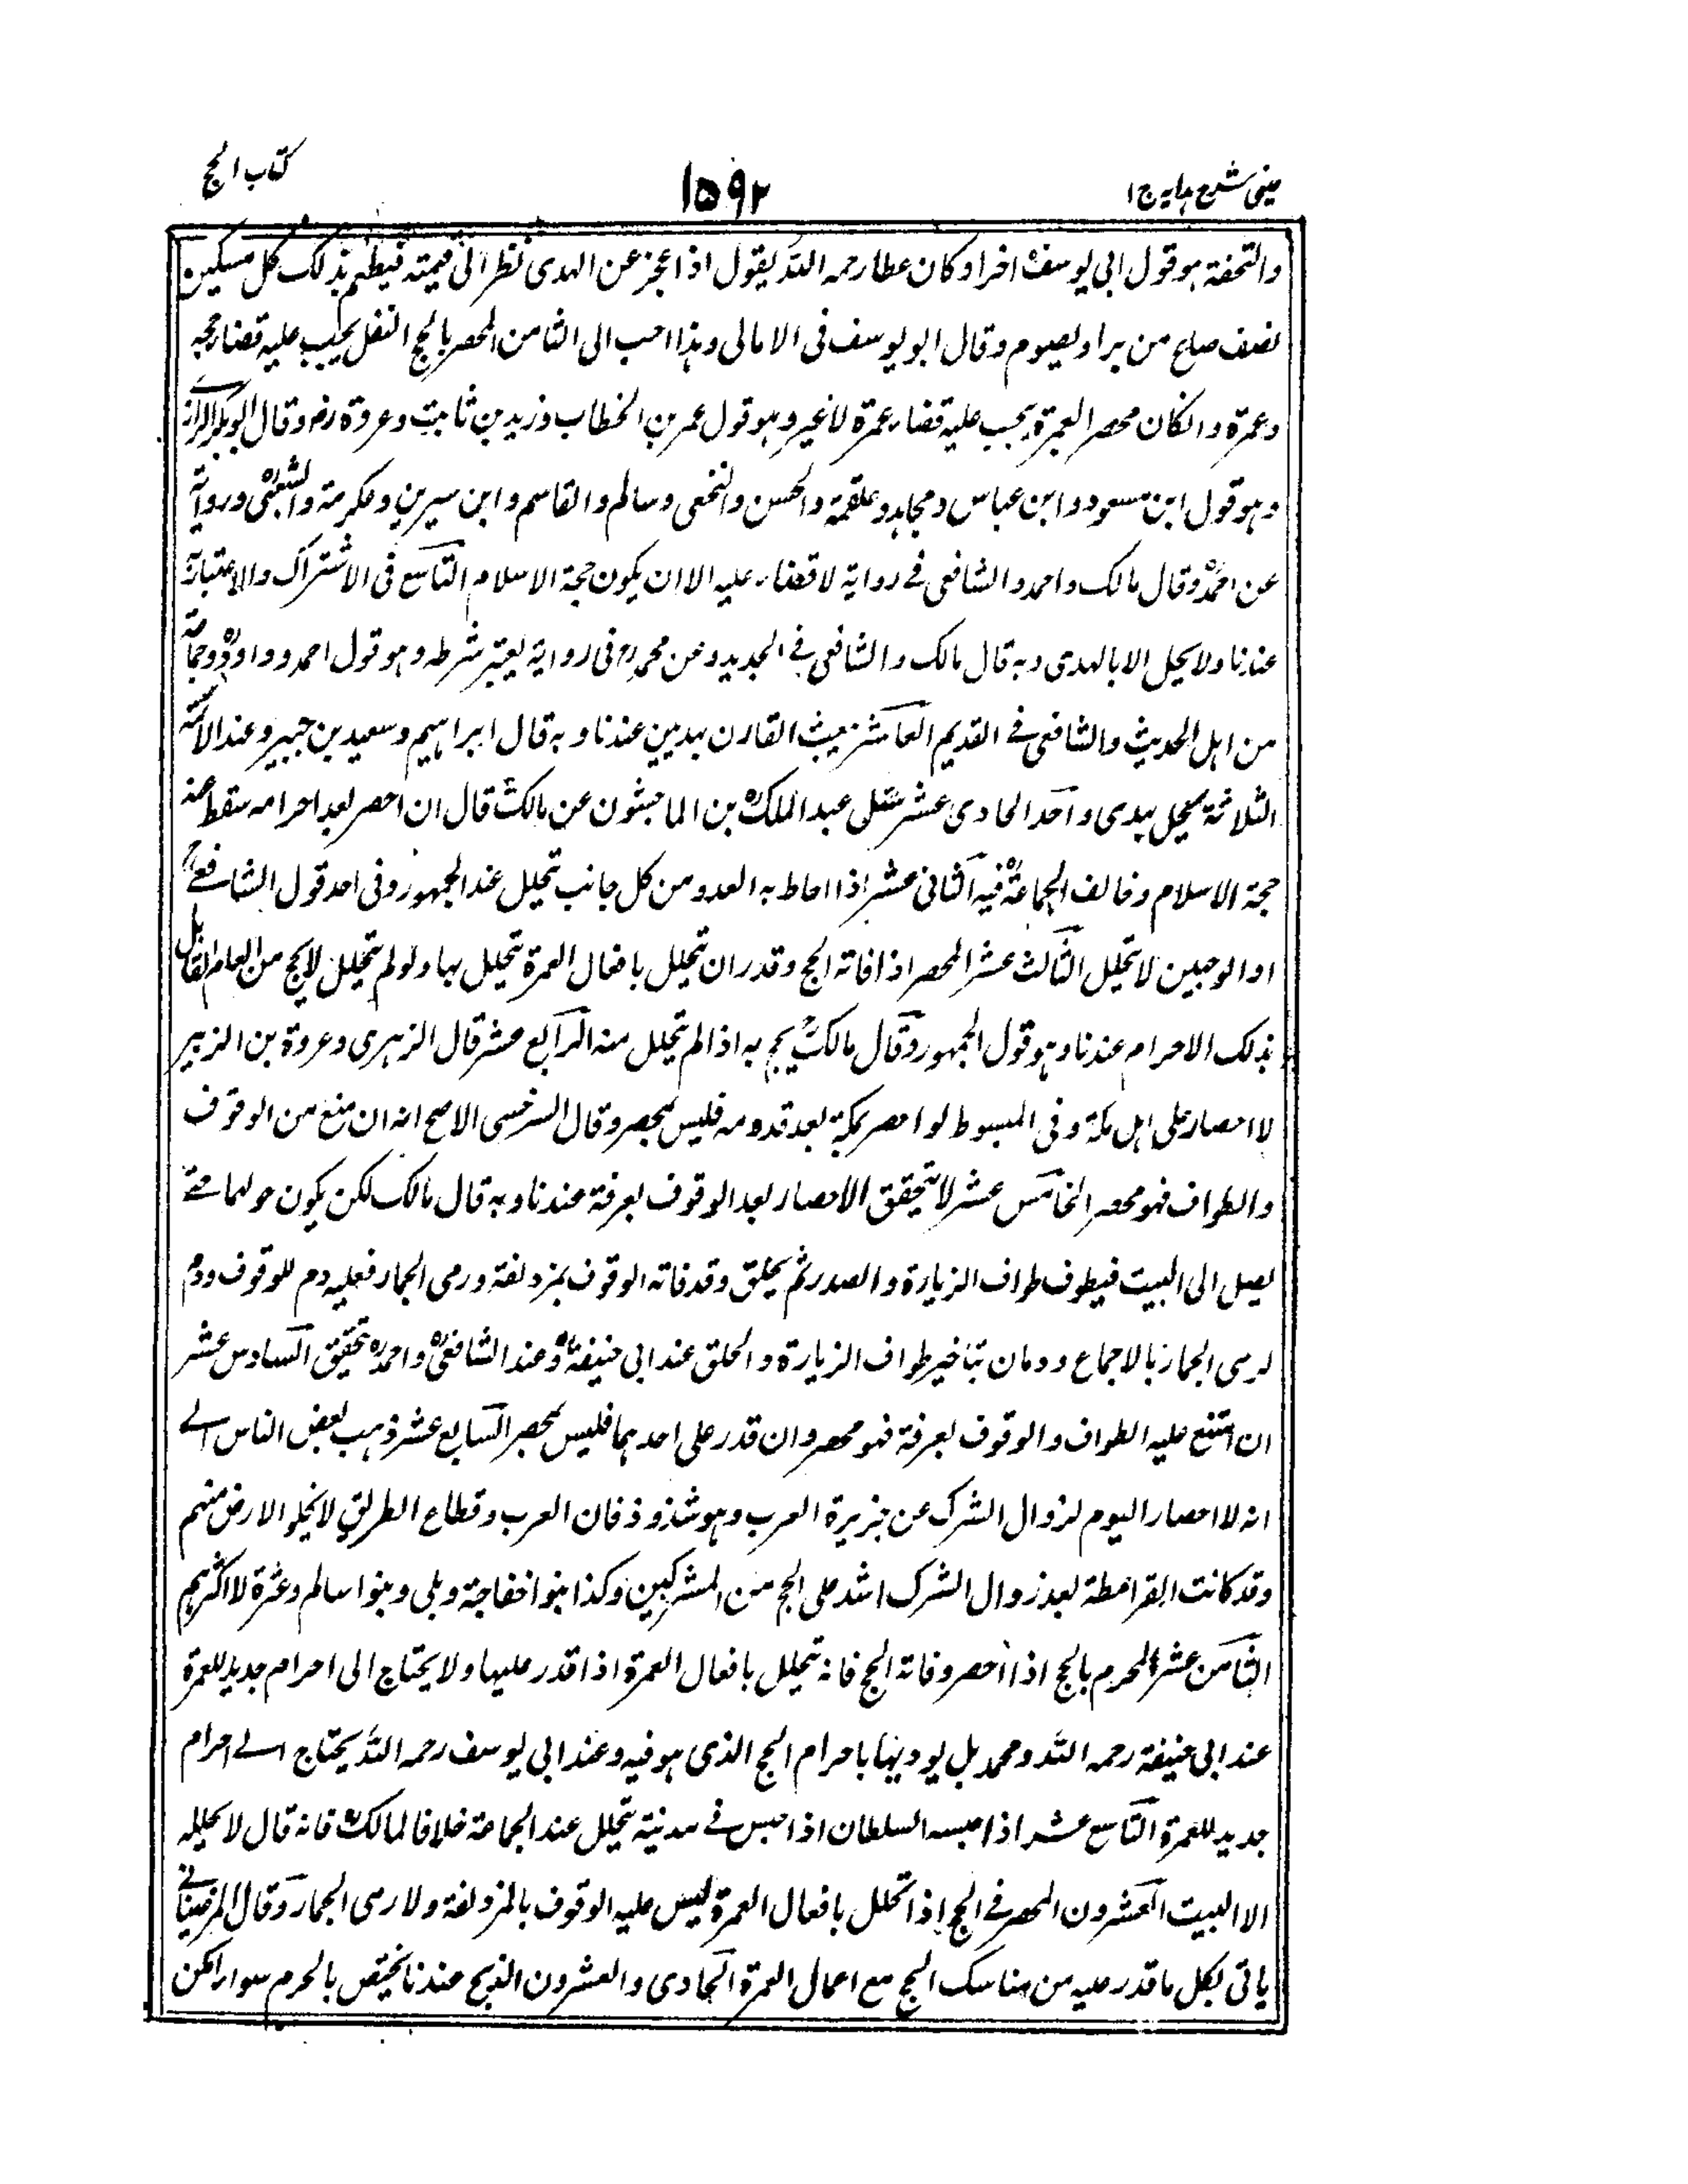 عینی شرح ہدایہ ج ا
۱۵۹۲
کتاب الحج
والتحفة ہو قول ابی یوسفؒ اخرا وکان عطاء رحمہ اللہ یقول اذا عجز عن الہدی نظر الی قیمتہ فیطعم بذلک کل مسکین
نصف صاع من بر او یصوم وقال ابو یوسف فی الامالی وہذا احب الی الثامن المحصر بالحج النفل یجب علیہ قضاء حجہ
وعمرة وانکان محصر العمرة یجب علیہ قضاء عمرة لا غیر وہو قول عمر بن الخطاب وزید بن ثابت وعروة رض وقال ابوبکر الرازی
وہو قول ابن مسعود وابن عباس ومجاہد وعلقمة والحسن والنخعی وسالم والقاسم وابن سیرین وعکرمة والشعبیؒ وروایة
عن احمدؒ وقال مالک واحمد والشافعی فی روایة لا قضاء علیہ الا ان یکون حجة الاسلام التاسع فی الاشتراک والاعتبار
عندنا ولا یحل الا بالہدی وبہ قال مالک والشافعی فی الجدید وعن محمدرح فی روایة یعتبر شرطہ وہو قول احمد وداودؒ وجماعة
من اہل الحدیث والشافعی فی القدیم العاشر یبعث القارن بہدیین عندنا وبہ قال ابراہیم وسعید بن جبیر وعند الائمة
الثلاثة یتحلل بہدی واحد الحادی عشر نقل عبد الملکؒ بن الماجشون عن مالکؒ قال ان احصر بعد احرامہ سقط عنہ
حجة الاسلام وخالف الجماعةؒ فیہ الثانی عشر اذا احاط بہ العدو من کل جانب تحلل عند الجمہور وفی احد قول الشافعیؒ
او الوجہین لا تحلل الثالث عشر المحصر اذا فاتہ الحج وقدر ان تحلل بافعال العمرة تحلل بہا ولو لم تحلل لا یحج من العام القابل
بذلک الاحرام عندنا وہو قول الجمہور وقال مالکؒ یحج بہ اذا لم تحلل منہ الرابع عشر قال الزہری وعروة بن الزبیر
لا احصار علی اہل مکة وفی المبسوط لو احصر بمکة بعد قدومہ فلیس بمحصر وقال السرخسی الاصح انہ ان منع من الوقوف
والطواف فہو محصر الخامس عشر لا یتحقق الاحصار بعد الوقوف بعرفة عندنا وبہ قال مالک لکن یکون حراما حتی
یصل الی البیت فیطوف طواف الزیارة والصدر ثم یحلق وقد فاتہ الوقوف بمزدلفة ورمی الجمار فعلیہ دم للوقوف ودم
لرمی الجمار بالاجماع ودمان بتاخیر طواف الزیارة والحلق عند ابی حنیفةؒ وعند الشافعیؒ واحمدؒ تحقق السادس عشر
ان امتنع علیہ الطواف والوقوف بعرفة فہو محصر وان قدر علی احدہما فلیس بمحصر السابع عشر ذہب بعض الناس الی
انہ لا احصار الیوم لزوال الشرک عن جزیرة العرب وہو شذوذ فان العرب وقطاع الطریق لا تخلو الارض منہم
وقد کانت القرامطة بعد زوال الشرک اشد علی الحج من المشرکین وکذا بنوا خفاجة وبلی وبنوا سالم وعنزة لا اکثرہم
الثامن عشر المحرم بالحج اذا احصر وفاتہ الحج فانہ تحلل بافعال العمرة اذا قدر علیہا ولا یحتاج الی احرام جدید للعمرة
عند ابی حنیفة رحمہ اللہ ومحمد بل یودیہا باحرام الحج الذی ہو فیہ وعند ابی یوسف رحمہ اللہ یحتاج الی احرام
جدید للعمرة التاسع عشر اذا حبسہ السلطان اذا حبس فی مدینة تحلل عند الجماعة خلافا لمالکؒ فانہ قال لا یحللہ
الا البیت العشرون المحصر فی الحج اذا تحلل بافعال العمرة لیس علیہ الوقوف بالمزدلفة ولا رمی الجمار وقال المرغینانی
یاتی بکل ما قدر علیہ من مناسک الحج مع اعمال العمرة الحادی والعشرون الذبح عندنا یختص بالحرم سواء امکن